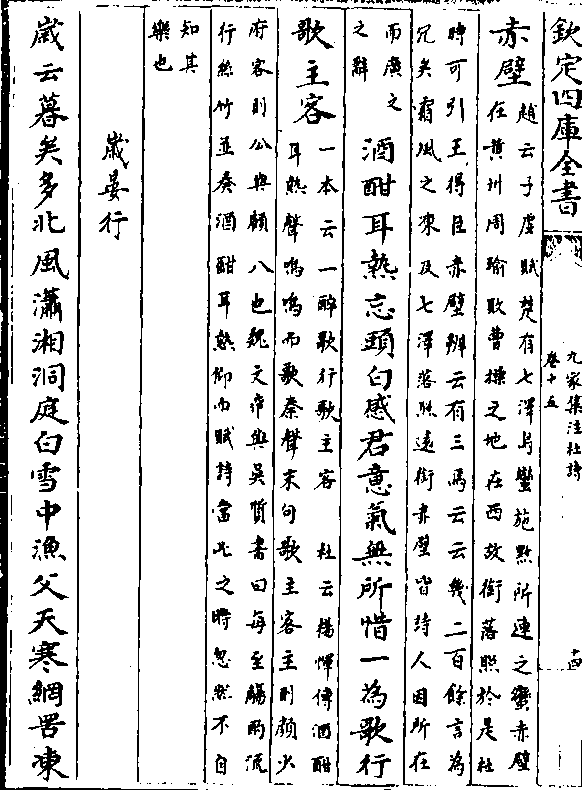 欽定四庫全書
九家集注杜詩
卷十五
十四
赤壁
趙云子虛賦楚有七澤與蠻施黔所連之蠻赤壁
在黃州周瑜敗曹操之地在西故銜落照於是杜
時可引王得臣赤壁辨云有三焉云云幾二百餘言為
冗矣霜風之來及七澤落照遠銜赤壁皆詩人因所在
而廣之
之辭
酒酣耳熱忘頭白感君意氣無所惜一為歌行
歌主客
一本云一醉歌行歌主客 杜云楊惲傳酒酣
耳熱聲嗚嗚而歌秦聲末句歌主客主則顏少
府客則公與顧八也魏文帝與吳質書曰每至觴酌流
行絲竹並奏酒酣耳熱仰而賦詩當此之時忽然不自
知其
樂也
歲晏行
歲云暮矣多北風瀟湘洞庭白雪中漁父天寒網罟凍